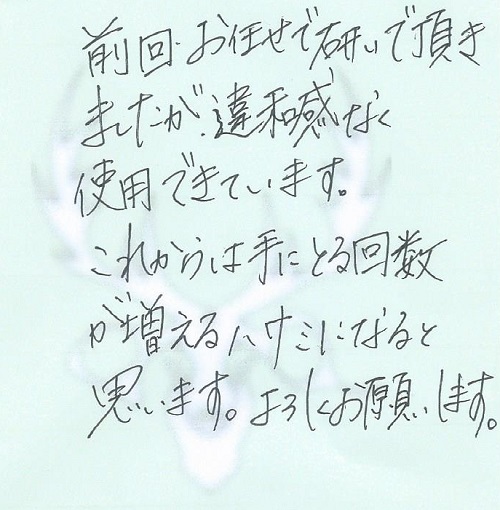 前回、お任せで研いで頂き
ましたが、違和感なく
使用できています。
これからは手にとる回数
が増えるハサミになると
思います。よろしくお願いします。